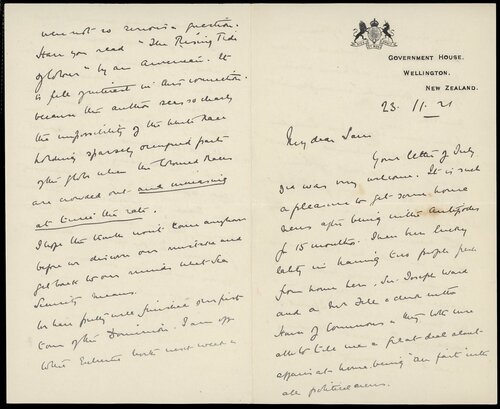 GOVERNMENT HOUSE,
WELLINGTON,
NEW ZEALAND.
23. 11. 21
My dear
Your letter of July
was very welcome. It is such
a pleasure to get some home
news after being in the Antipodes
for 15 months. I have been lucky
lately in having two people fresh
from home here, Sir Joseph Ward
and a Mr a clerk in the
House of Commons & they both were
able to tell me a great deal about
affairs at home, being "au fait" with
all political news.
were not so serious a question.
Have you read "The Rising Tide
of Colour" by an American. It
is full of interest in this connection
because the author sees so clearly
the impossibility of the White Races
holding sparsely occupied parts
of the globe when the Coloured Races
are crowded out and increasing
at twice the rate.
I hope the trouble won't come anyhow
before we discover our mistake and
get back to our minds what Sea
Security means.
We have pretty well finished our first
tour of the Dominion. I am off
next week in